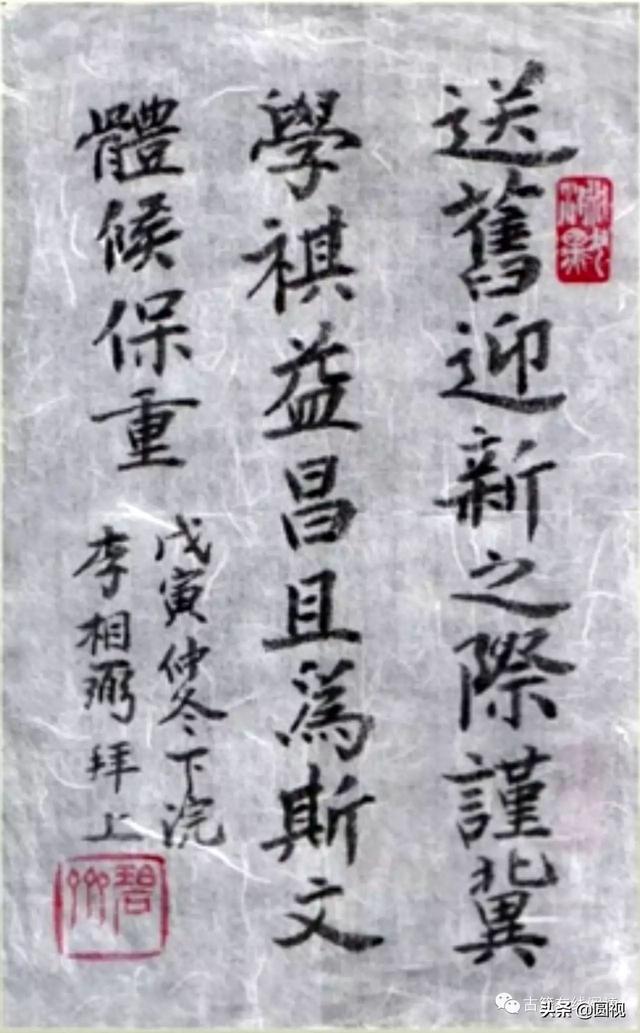 送舊迎新之際謹冀
學祺益昌且為斯文
體候保重
戊寅仲冬下浣
李相弼拜上
碧
头条 @圆视